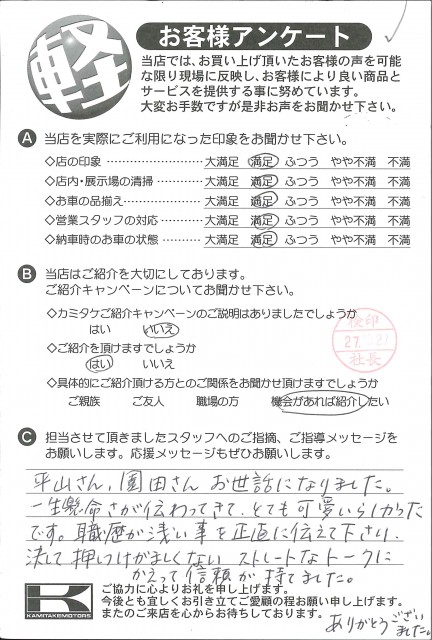 軽
お客様アンケート
当店では、お買い上げ頂いたお客様の声を可能
な限り現場に反映し、お客様により良い商品と
サービスを提供する事に努めています。
大変お手数ですが是非お声をお聞かせ下さい。
A 当店を実際にご利用になった印象をお聞かせ下さい。
◇店の印象 ………………… 大満足 満足 ふつう やや不満 不満
◇店内・展示場の清掃………… 大満足 満足 ふつう やや不満 不満
◇お車の品揃え……………… 大満足 満足 ふつう やや不満 不満
◇営業スタッフの対応………… 大満足 満足 ふつう やや不満 不満
◇納車時のお車の状態………… 大満足 満足 ふつう やや不満 不満
B 当店はご紹介を大切にしております。
ご紹介キャンペーンについてお聞かせ下さい。
◇カミタケご紹介キャンペーンのご説明はありましたでしょうか
はい いいえ
◇ご紹介を頂けますでしょうか
はい いいえ
◇具体的にご紹介頂ける方とのご関係をお聞かせ頂けますでしょうか
ご親族 ご友人 職場の方 機会があれば紹介したい
検印
27
社長
C 担当させて頂きましたスタッフへのご指摘、ご指導メッセージを
お願いします。応援メッセージもぜひお願いします。
平山さん、園田さん お世話になりました。
一生懸命さが伝わってきて、とても可愛いらしかった
です。職歴が浅い事を正直に伝えて下さり、
決して押しつけがましくない ストレートなトークに
かえって信頼が持てました。
ありがとうございました。
KAMITAKEMOTORS
ご協力に心よりお礼を申し上げます。
今後とも宜しくお引き立てご愛顧の程お願い申し上げます。
またのご来店を心からお待ちしております。